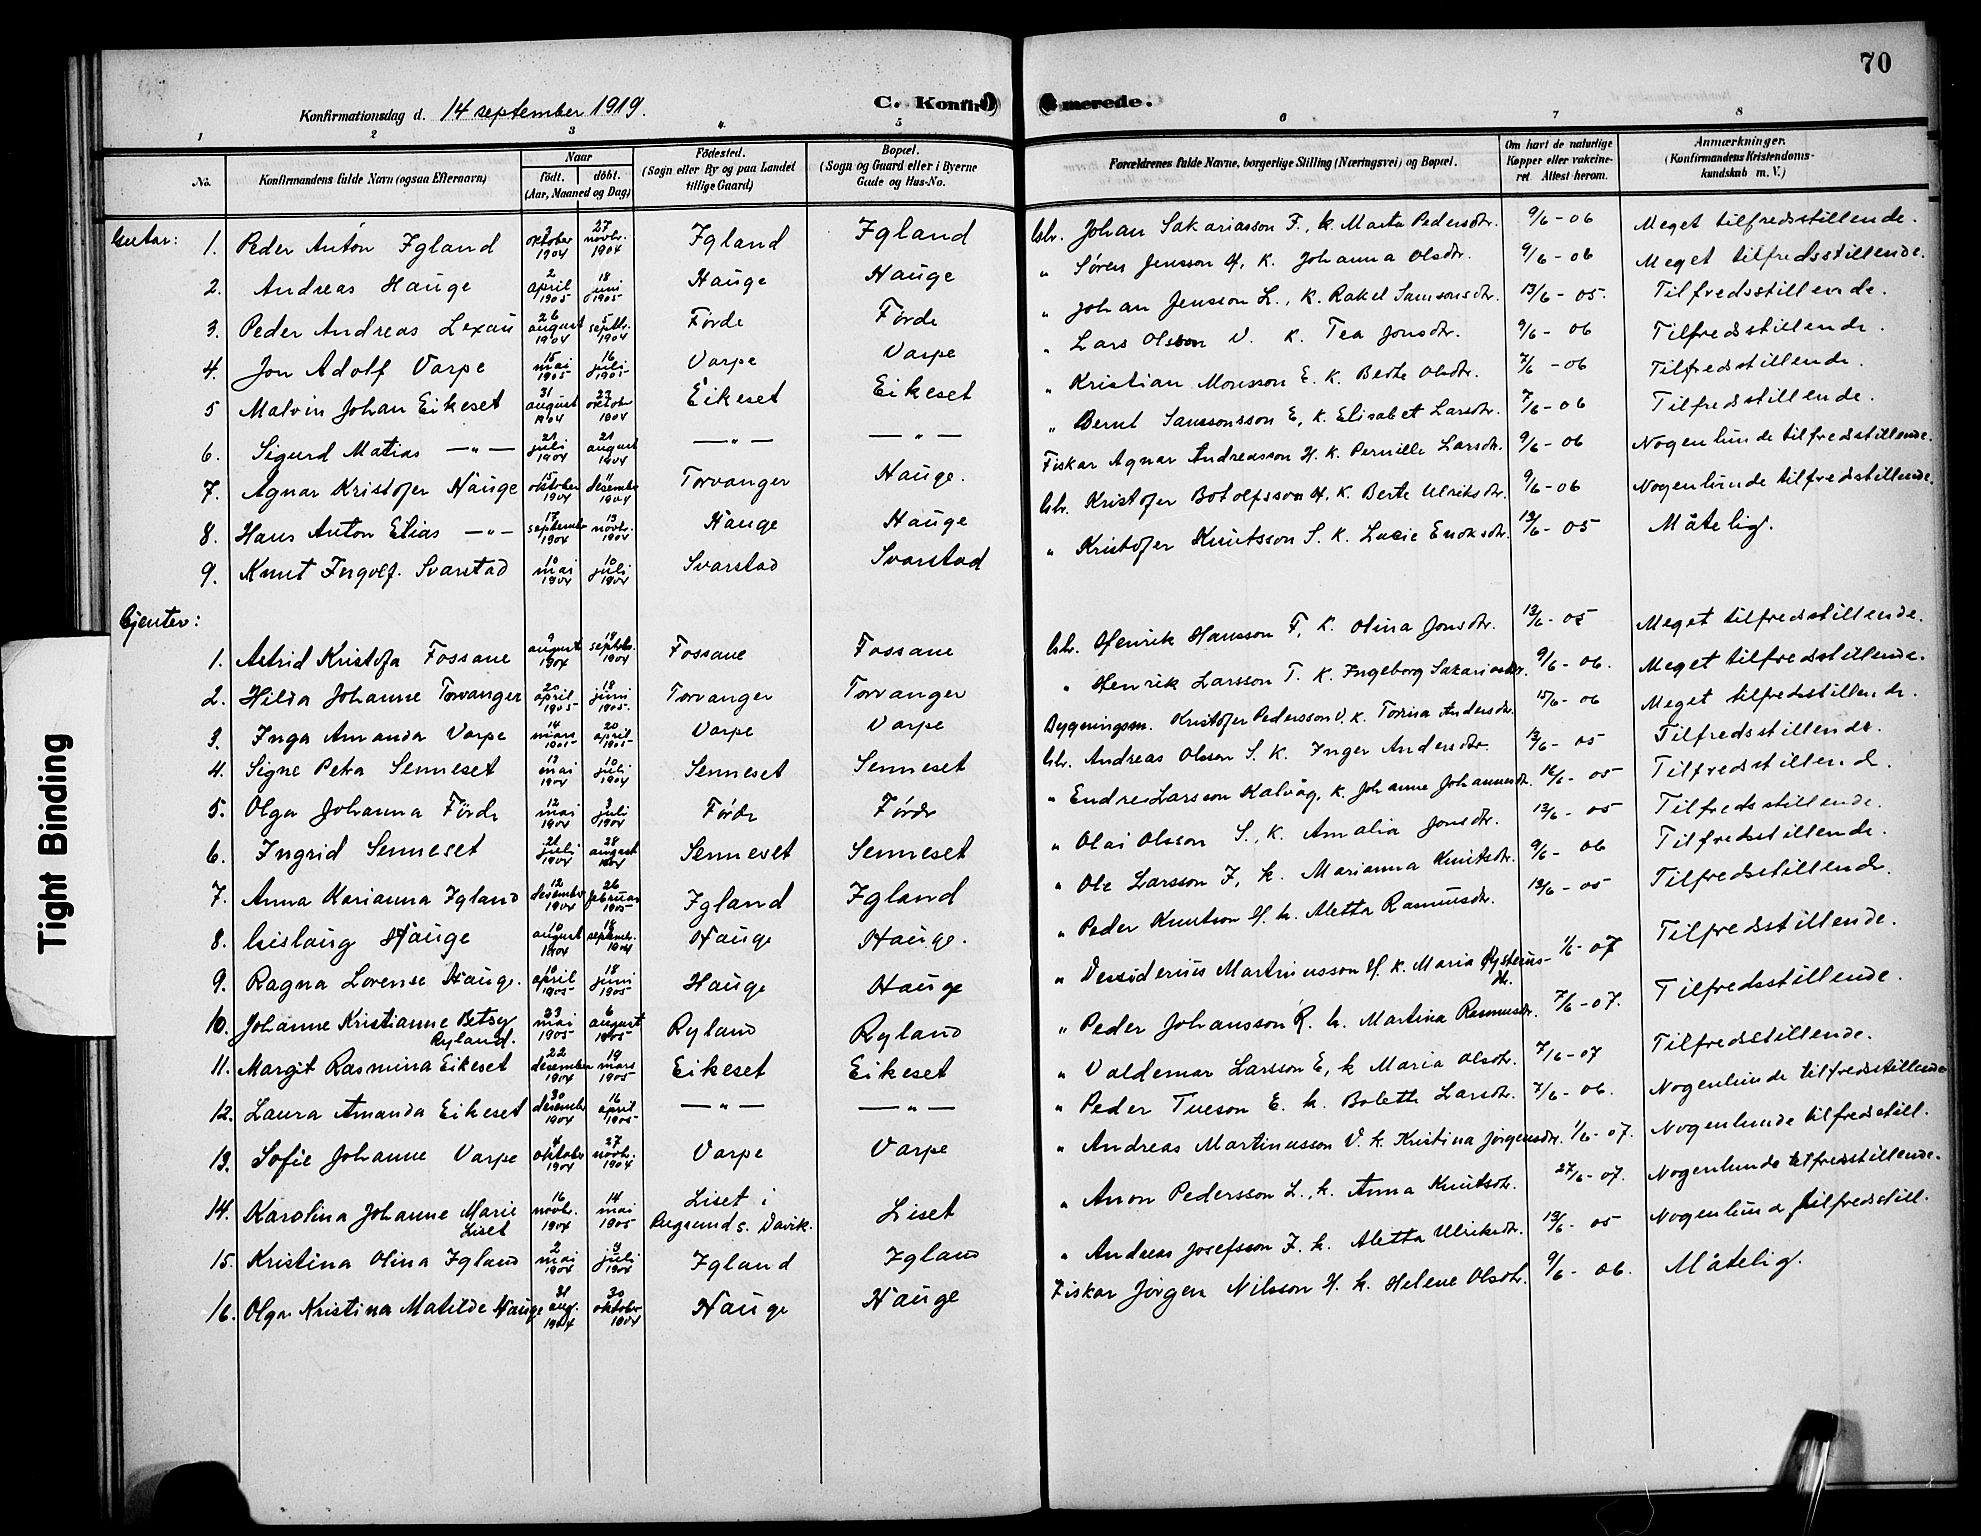 70
C. Konfirmerede.
Konfirmationsdag d. 14 september 1919.
1 2 3 4 5 6 7 8
No. Konfirmandens fulde Navn (ogsaa Efternavn) Naar født. døbt. (Aar, Maaned og Dag) Fødested. (Sogn eller By og paa Landet tillige Gaard) Bopæl. (Sogn og Gaard eller i Byerne Gade og Hus-No. Forældrenes fulde Navne, borgerlige Stilling (Næringsvei) og Bopæl. Om havt de naturlige Kopper eller vaccineret Attest herom. Anmærkninger. (Konfirmandens Kristendomskundskab m. V.)
Gutar:
1. Peder Anton Igland oktober 1904 27 novbr. 1904 Igland Igland Gbr. Johan Sakariasson F., k. Marta Pedersdtr. 9/6 - 06 Meget tilfredsstillende.
2. Andreas Hauge 2 april 1905 18 juni 1905 Hauge Hauge " Søren Jensson H, K. Johanna Olsdtr. 9/6 - 06 Meget tilfredsstillende.
3. Peder Andreas Lexau 26 august 1904 5 septbr. 1904 Førde Førde " Johan Jensson L., K. Rakel Samsonsdtr. 13/6 - 05. Tilfredsstillende.
4. Jon Adolf Varpe 15 mai 1905 16 juli 1905 Varpe Varpe " Lars Olsson V. K. Tea Jonsdtr. 9/6 - 06 Tilfredsstillende.
5 Malvin Johan Eikeset 31 august 1904 23 oktobr 1904 Eikeset Eikeset " Kristian Monsson E. K. Berte Olsdtr. 7/6 - 06 Tilfredsstillende.
6. Sigurd Matias — " — 21 juli 1904 21 august 1904 — " — — " — " Bernt Samsonsson E, K. Elisabet Larsdtr. 7/6 - 06 Tilfredsstillende.
7. Agnar Kristofer Hauge 15 oktober 1904 11 desembr 1904 Torvanger Hauge. Fiskar Agnar Andreasson H. K. Pernille Larsdtr. 9/6 - 06 Nogenlunde tilfredsstillende.
8. Hans Anton Elias — " — 17 septembr 1904 13 novbr. 1904 Hauge Hauge Gbr. Kristofer Botolfsson H, K. Berte Ulriksdtr. 9/6 - 06 Nogenlunde tilfredsstillende.
9. Knut Ingolf. Svarstad 10 mai 1904 10 juli 1904 Svarstad Svarstad " Kristofer Knutsson S. K. Lucie Enoksdtr. 13/6 - 05 Måtelig.
Gjenter:
1. Astrid Kristofa Fossane 9 august 1904 18 septbr. 1904 Fossane Fossane Gbr. Henrik Hansson F, K. Olina Jonsdtr. 13/6 - 05 Meget tilfredsstillende.
2. Hilda Johanne Torvanger 20 april 1905 18 juni 1905. Torvanger Torvanger " Henrik Larsson T. K. Ingeborg Sakariasdtr. 9/6 - 06. Meget tilfredsstillende.
3. Inga Amanda Varpe 14 mars 1905 20 april 1905 Varpe Varpe Bygningsm. Kristofer Pedersson V. K. Tomina Andersdtr. 15/6 - 06 Meget tilfredsstillende.
4. Signe Petra Senneset 13 mai 1904 10 juli 1904 Senneset Senneset Gbr. Andreas Olsson S. K. Inger Andersdtr. 13/6 - 05 Tilfredsstillende.
5. Olga Johanna Førde 12 mai 1904 3 juli 1904 Førde Førde " Endre Larsson Kalvåg, K. Johanne Johannesdtr. 16/6 - 05 Tilfredsstillende.
6. Ingrid Senneset 21 juli 1904 28 august 1904 Senneset Senneset " Olai Olsson S., K. Amalia Jonsdtr. 13/6 - 05 Tilfredsstillende.
7. Anna Karianna Igland 12 desembr 1904 26 februar 1905 Igland Igland " Ole Larsson I, k. Marianna Knutsdtr. 9/6 - 06 Tilfredsstillende.
8. Gislaug Hauge 10 august 1904 18 septemb. 1904 Hauge Hauge. " Peder Knutson H. k. Aletta Rasmusdtr. 13/6 - 05 Tilfredsstillende.
9. Ragna Lorense Hauge. 10 april 1905 18 juni 1905 Hauge Hauge " Dessiderius Martinusson H. K. Maria Rysterusdtr. 1/6 - 07 Tilfredsstillende.
10. Johanne Kristianne Betsy Ryland. 23 mai 1905 6 august 1905 Ryland Ryland " Peder Johansson R. k. Martina Rasmusdtr. 7/6 - 07. Tilfredsstillende.
11. Margit Rasmina Eikeset 22 desember 1904 19 mars 1905 Eikeset Eikeset " Valdemar Larsson E, k Maria Olsdtr. 7/6 - 07 Tilfredsstillende.
12. Laura Amanda Eikeset 30 desembr 1904 16 april 1905 — " — — " — " Peder Tueson E. k. Bolette Larsdtr. 7/6 - 06. Nogenlunde tilfredsstillende
13. Sofie Johanne Varpe 4 oktobr 1904 27 novbr. 1904 Varpe Varpe " Andreas Martinusson V. k. Kristina Jørgensdtr. 1/6 - 07. Nogenlunde tilfredsstill.
14. Karolina Johanne Marie Liset 16 novbr. 1904 14 mai 1905 Liset i Rugsund s. Davik. Liset " Anon Pedersson L., k. Anna Knutsdtr. 27/6 - 07. Nogenlunde tilfredsstillende.
15. Kristina Olina Igland 2 mai 1904 4 juli 1904 Igland Igland " Andreas Josefsson I. k. Aletta Ulriksdtr. 13/6 - 05 Nogenlunde tilfredsstill.
16. Olga Kristina Matilde Hauge 31 aug. 1904 30 oktobr 1904 Hauge Hauge Fiskar Jørgen Nilsson H. k. Helene Olsdtr. 9/6 - 06. Måtelig.
Tight Binding